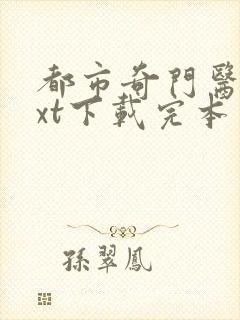 都市奇門醫
xt下載完本
孫翠鳳